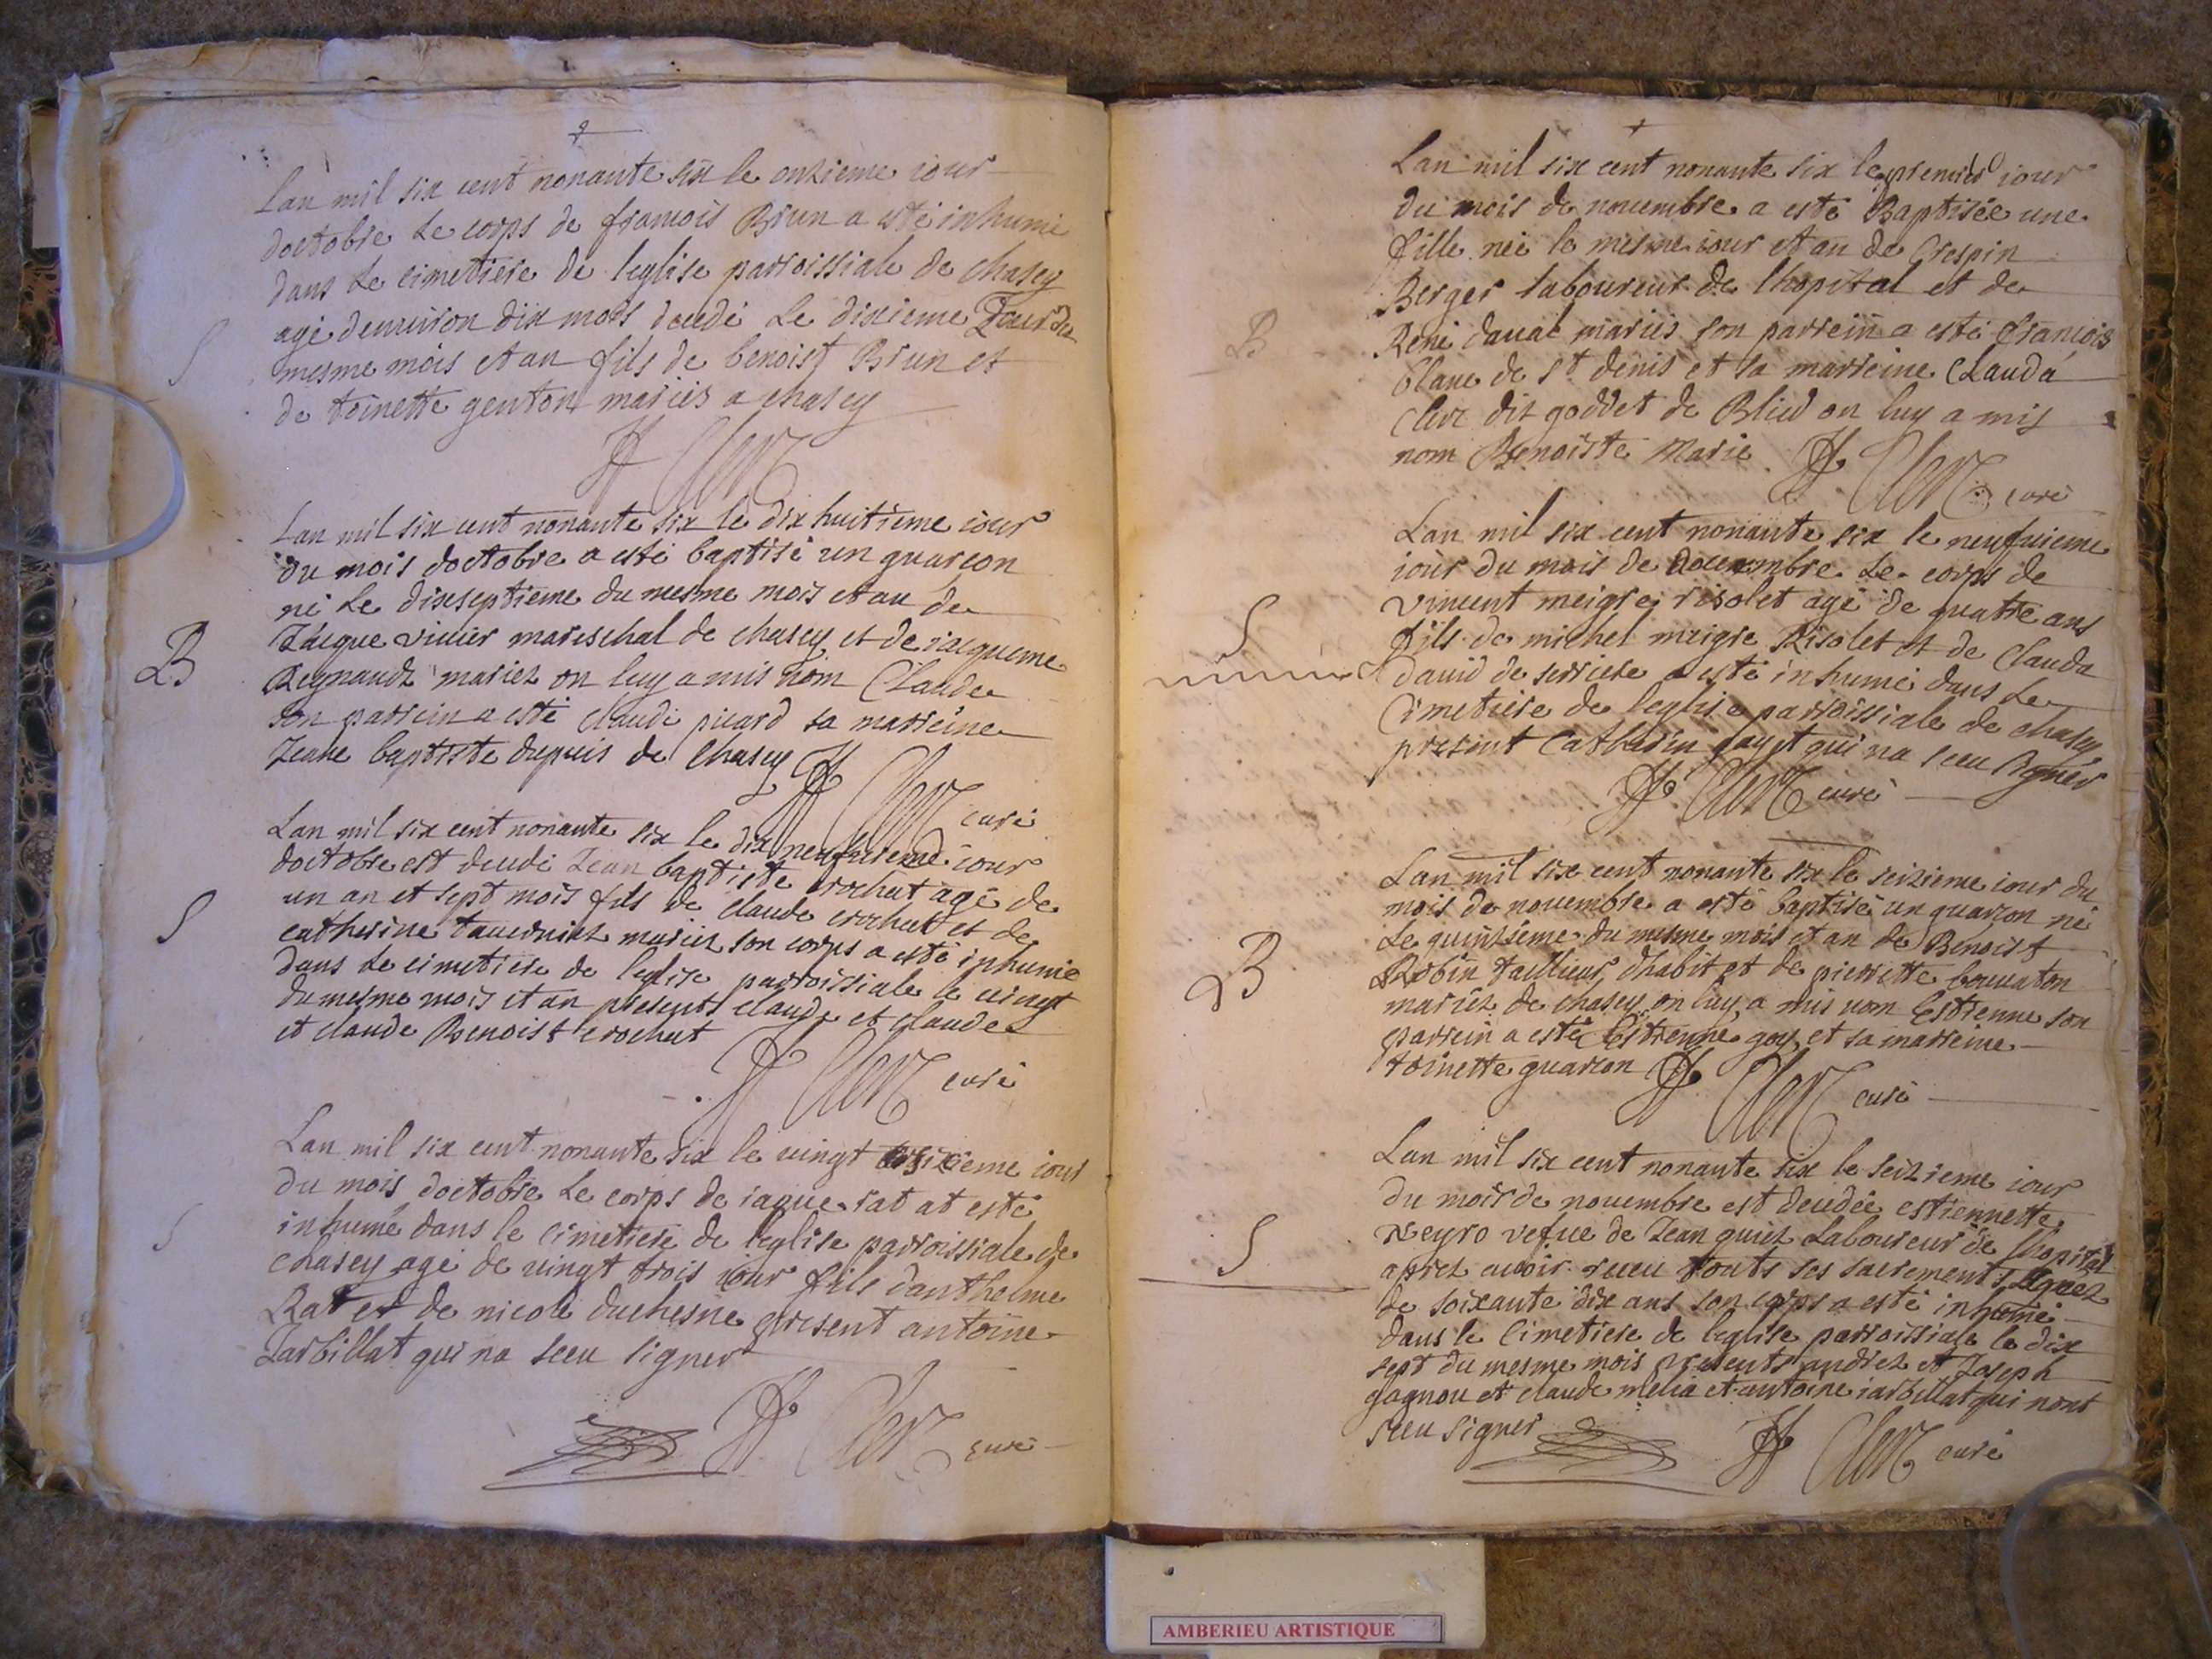 Lan mil six cent nonante six le onzieme iour
doctobre Le corps de francois Brun a esté inhumé
dans Le cimetiere de leglise parroissiale de chasey
agé denuiron dix mois decedé Le dixieme Jour du
mesme mois et an fils de benoist Brun et
S
de toinette genton mariés a chasey
Clerc
Lan mil six cent nonante six le dix huitieme iour
du mois doctobre a esté baptisé un guarcon
né Le dixseptieme du mesme mois et an de
Jacque viuier mareschal de chasey et de iacqueme
B
Regnaudz mariez on luy a mis nom Claude
son parrein a esté claude picard sa marreine
Jeane baptiste dupuis de Chasey
Clerc curé
Lan mil six cent nonante six le dix neufuieme iour
doctobre est decedé Jean baptiste crochut agé de
un an et sept mois fils de claude crochut et de
S
catherine tauerniez mariez son corps a esté inhumé
dans Le cimetiere de leglise parroissiale le vingt
du mesme mois et an presents claude et claude
et claude Benoist crochut
Clerc curé
Lan mil six cent nonante six le vingt sixieme iour
du mois doctobre Le corps de iaque rat at esté
S
inhumé dans le Cimetiere de leglise parroissiale de
chasey agé de vingt trois iour fils danthelme
Rat et de nicole duchesne present antoine
Jarbillat qui na sceu signer
Clerc curé
Lan mil six cent nonante six le premier iour
du mois de nouembre a esté Baptisée une
fille née le mesme iour et an de Crespin
Berger laboureur de lhopital et de
B
René daual mariés son parrein a esté francois
blanc de st denis et sa marreine Clauda
Clerc dit goddet de Blied on luy a mis
nom Benoiste Marie
Clerc curé
Lan mil six cent nonante six le neufuieme
iour du mois de nouembre Le corps de
vincent meigre risolet agé de quatre ans
S
fils de michel meigre Risolet et de Clauda
dauid de serriere a esté inhumé dans Le
Cimetiere de leglise parroissiale de chasey
present Catherin payet qui na sceu signer
Clerc curé
Lan mil six cent nonante six le seizieme iour du
mois de nouembre a esté baptisé un guarcon né
Le quinzieme du mesme mois et an de Benoist
B
Robin tailleur dhabit et de pierrette bouuaton
mariez de chasey on luy a mis nom Estienne son
parrein a esté Estienne goy et sa marreine
toinette guarcon
Clerc curé
Lan mil six cent nonante six le seizieme iour
du mois de nouembre est decedée estiennette
neyro vefue de Jean quiez Laboureur de lhopital
S
aprez auoir receu touts ses sacrements
de soixante dix ans son corps a esté inhumé
dans le Cimetiere de leglise parroissiale le dix
sept du mesme mois presents andrez et Joseph
gagnou et claude melia et antoine iarbillat qui nont
sceu signer
Clerc curé
AMBERIEU ARTISTIQUE